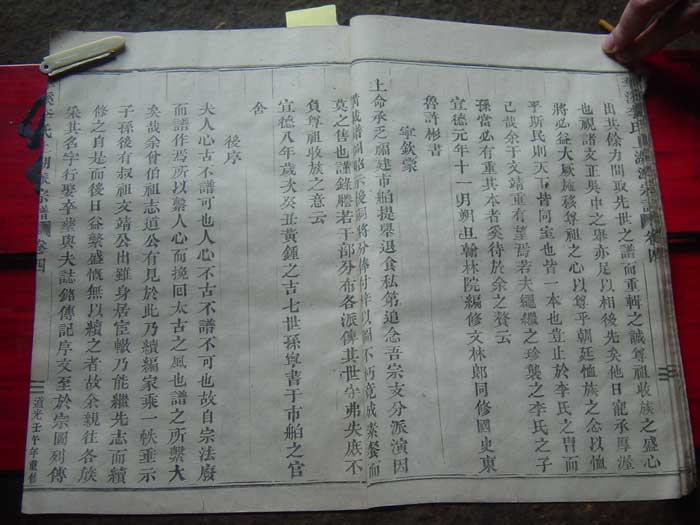 出其餘力間取先世之譜而重輯之誠尊祖收族之盛心
也視諸文正與申之舉亦足以相後先矣他日寵承厚渥
將必益大厥施移尊祖之心以尊乎朝廷恤族之念以恤
平斯民則天下皆同室也皆一本也豈止於李氏之冑而
已哉余于文靖重有望焉若夫繩繩之珍襲之李氏之子
孫當必有重其本者奚待於余之贅云
宣德元年十一月朔旦翰林院編修文林郎同修國史東
魯許彬書
寧欽蒙
上命承乏福建市舶提舉退食私第追念吾宗支分派演因
莫之售也謹錄謄若干部分布各派傳其世守弗失庶不
負尊祖收族之意云
宣德八年歲次癸丑黃鍾之吉七世孫寧書于市舶之官
舍
後序
夫人心古不譜可也人心不古不譜不可也故自宗法廢
而譜作焉所以繫人心而挽回太古之風也譜之所繫大
矣哉余曾伯祖志道公有見於此乃續編家乘一帙垂示
子孫後有叔祖文靖公出雖身居宦轍乃能繼先志而續
修之自是而後日益繁盛慨無以續之者故余親往各族
采其名字行娶卒葬與夫誌銘傳記序文至於宗圖列傳
宗譜 卷四
道光壬午年重修